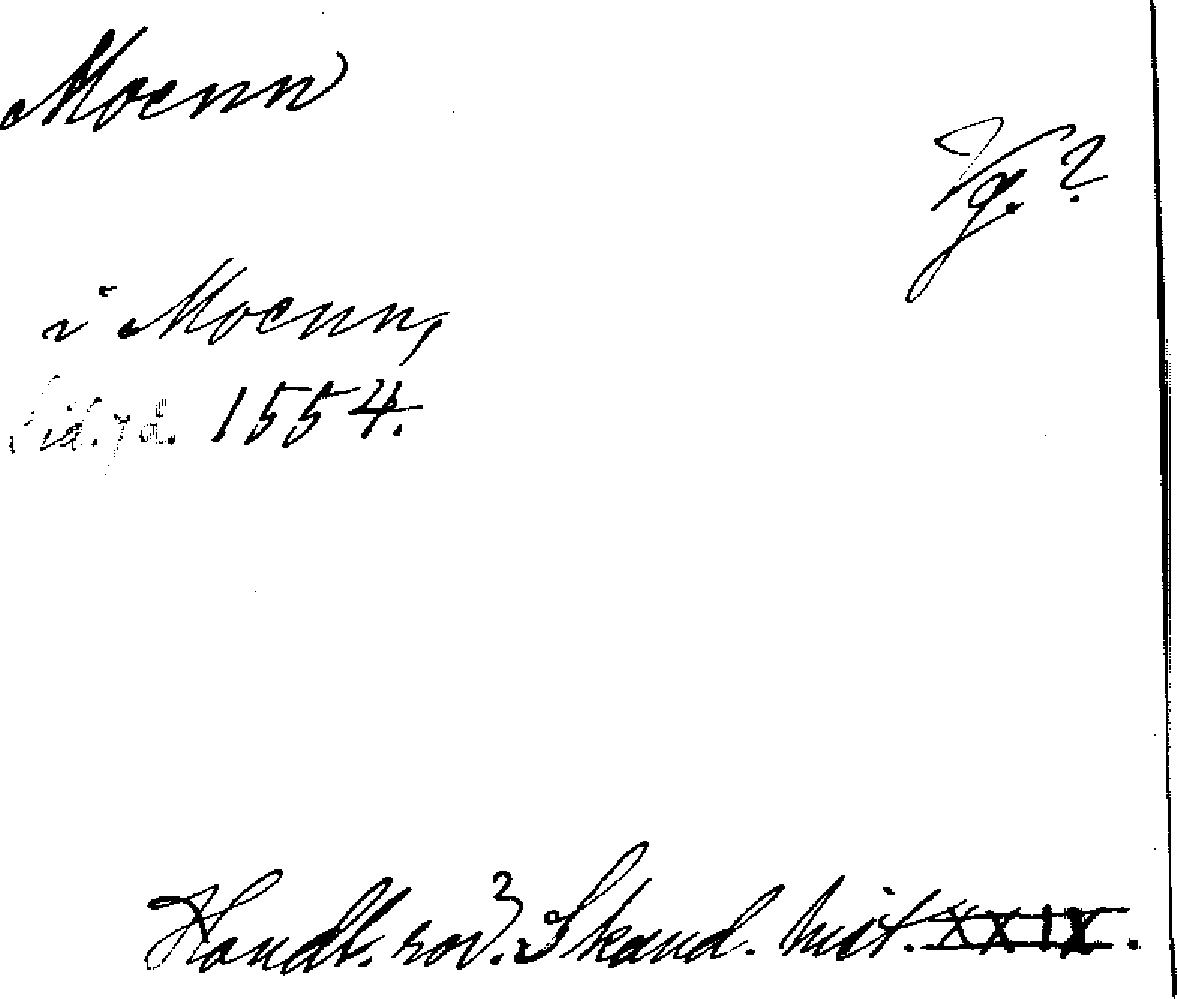 Moenn
Vg. ?
i Moenn,
1554.
Handl. rör. Skand. hist. XXIX.